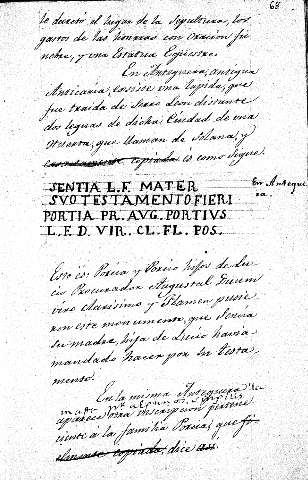 68
le decretó el lugar de la Sepultura, los
gastos de las honras con oracion fu
nebre, y una Estatua Equestre.
En Antequera, antigua
Anticaria, existe una lapida, que
fue traida de Serro Leon distante
dos leguas de dicha Ciudad de una
Huerta, que llaman de Solana, y
copiada es como sigue
SENTIA L. F. MATER
SVO TESTAMENTO FIERI
PORTIA PR. AVG. PORTIVS
L. F. D. VIR. CL. FL. POS.
En Anteque
ra.
Esto es: Porcia y Porcio hijos de Lu
cio Procurador Augustal Duum
viro Clarisimo y Flamen pusie
ron este monumento, que Sencia
su madre, hija de Lucio havia
mandado hacer por su testa
mento.
En la misma Antequera
aparece otra inscripcion pertene
ciente à la familia Porcia, que fi
elmente copiada, dice asi.